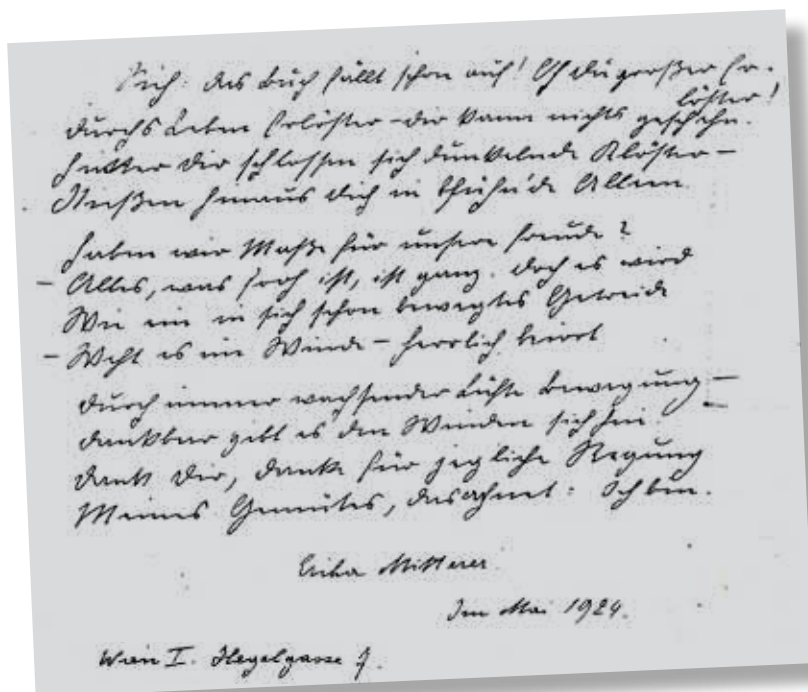 Sieh: das Buch fällt schon auf! Oh du großer Er-
löster!
durchs Leben Erlöster – dir kann nichts geschehn.
Hinter dir schlossen sich dunkelnde Klöster –
Stießen hinaus dich in blühnde Alleen.
Haben wir Maße für unsere Freude?
– Alles, was froh ist, ist ganz. Doch es wird
Wie ein in sich schon bewegtes Getreide
– Weht es im Winde – herrlich beirrt
durch immer wachsender Lüfte Bewegung –
dankbar gibt es den Winden sich hin. –
Dank Dir, Dank für jegliche Regung
Meines Gemütes, das ahnet: Ich bin.
Erika Mitterer
Im Mai 1924.
Wien I. Hegelgasse 7.